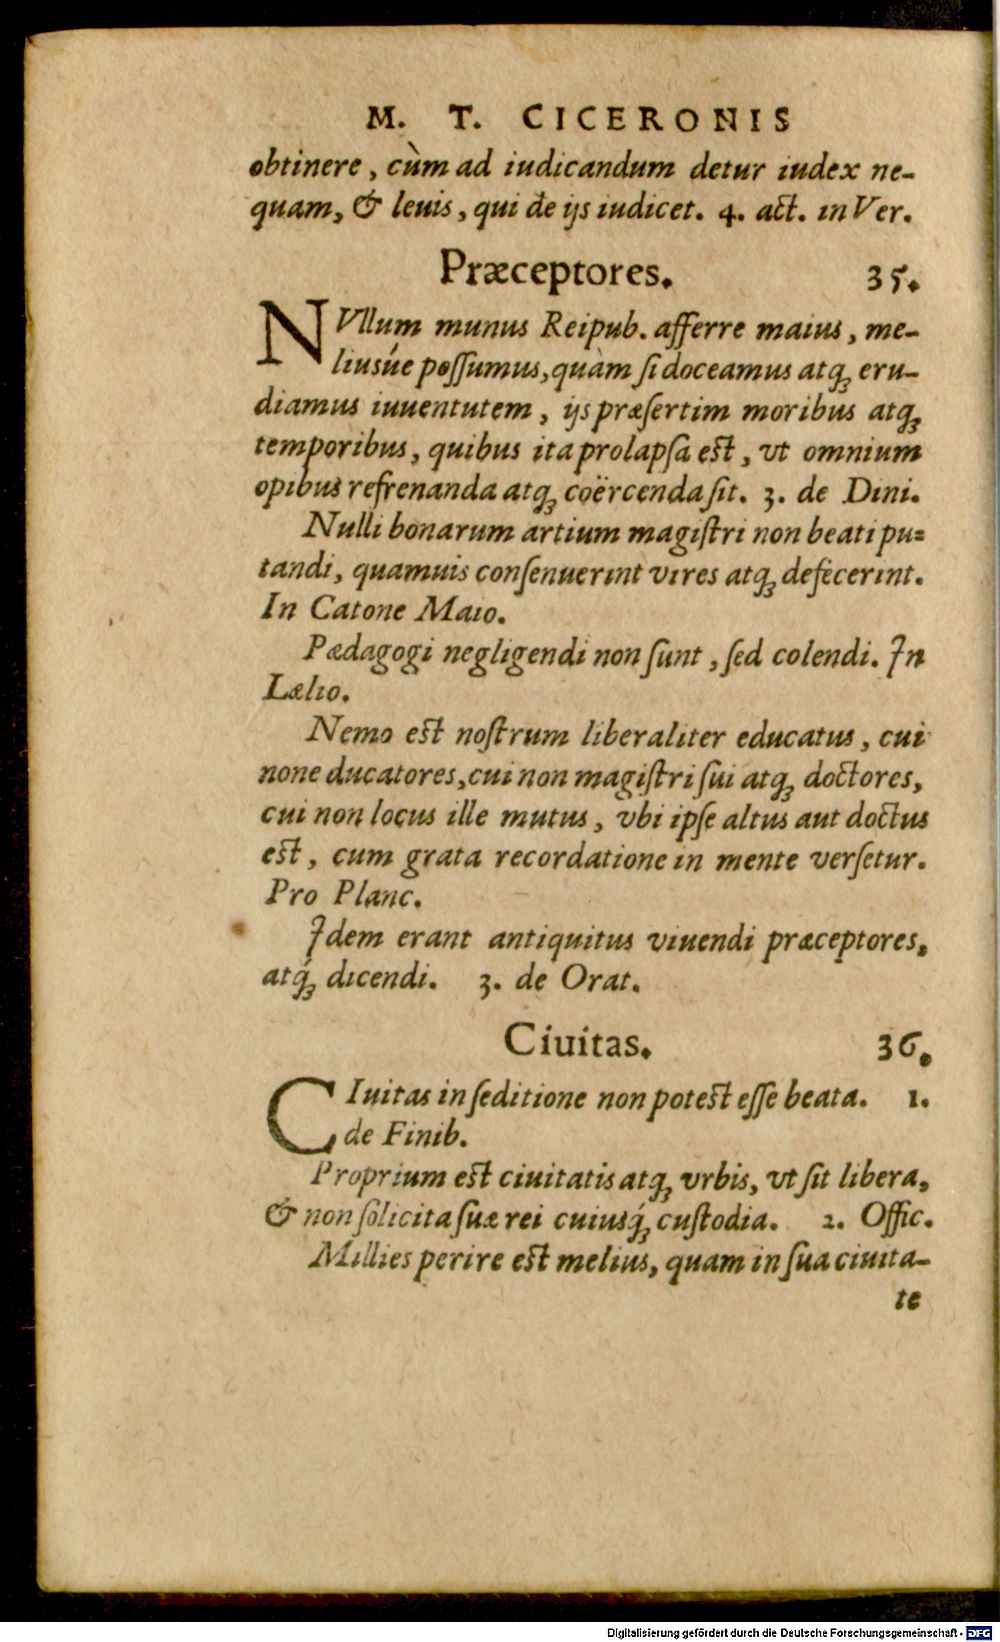 M. T. CICERONIS
obtinere, cùm ad iudicandum detur iudex ne-
quam, & leuis, qui de ijs iudicet. 4. act. in Ver.
Præceptores. 35.
NVllum munus Reipub. afferre maius, me-
liusúe possumus, quàm si doceamus atq; eru-
diamus iuuentutem, ijs præsertim moribus atq;
temporibus, quibus ita prolapsa est, vt omnium
opibus refrenanda atq; coërcenda sit. 3. de Diui.
Nulli bonarum artium magistri non beati pu=
tandi, quamuis consenuerint vires atq; defecerint.
In Catone Maio.
Pædagogi negligendi non sunt, sed colendi. In
Lælio.
Nemo est nostrum liberaliter educatus, cui
none ducatores, cui non magistri sui atq; doctores,
cui non locus ille mutus, vbi ipse altus aut doctus
est, cum grata recordatione in mente versetur.
Pro Planc.
Idem erant antiquitus viuendi præceptores,
atq́; dicendi. 3. de Orat.
Ciuitas. 36.
CIuitas in seditione non potest esse beata. 1.
de Finib.
Proprium est ciuitatis atq; vrbis, vt sit libera,
& non solicita suæ rei cuiusq́; custodia. 2. Offic.
Millies perire est melius, quam in sua ciuita-
te
Digitalisierung gefördert durch die Deutsche Forschungsgemeinschaft - DFG